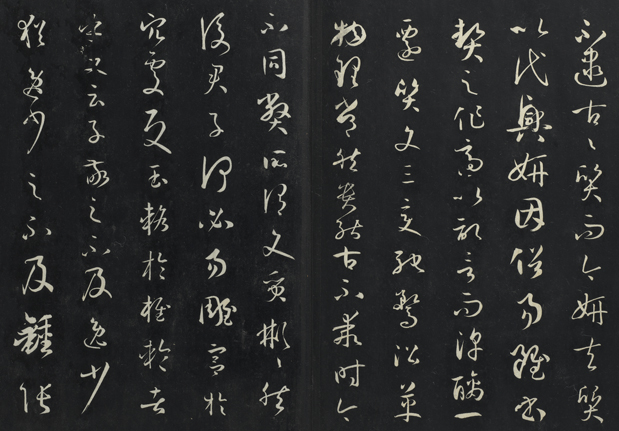 不逮古〻質而今妍夫質
以代興妍因俗易雖書
契之作適以記言而淳醨一
遷質文三變馳騖沿革
物理常然貴能古不乖時今
不同弊所謂文質彬〻然
後君子何必易雕宮於
穴處反玉輅於椎輪者
乎又云子敬之不及逸少
猶逸少之不及鍾張